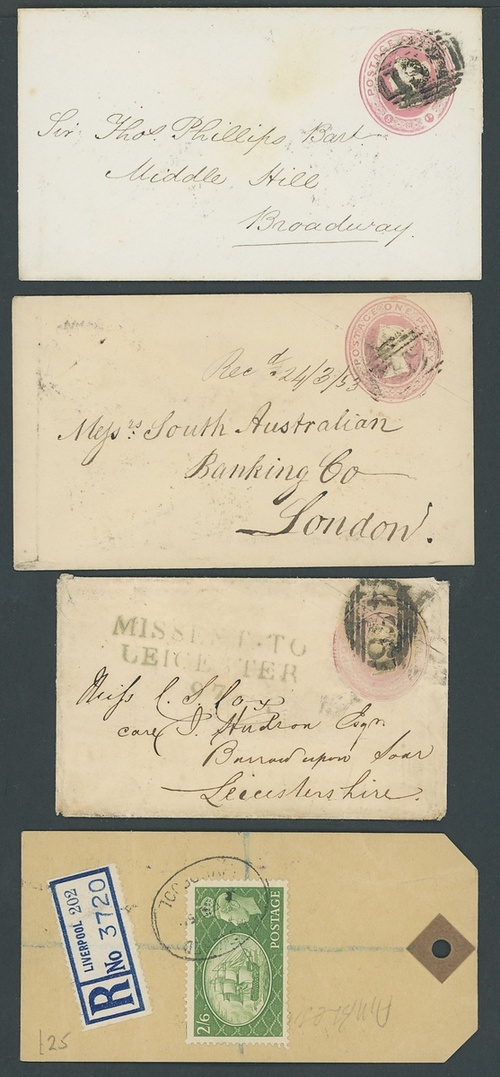 POSTAGE
Sir Thos. Phillips Bart
Middle Hill
Broadway.
POSTAGE ONE PE
Rec d 24/3/53
Messrs. South Australian
Banking Co
London.
MISSENT-TO
LEICESTER
Miss C. S. Cox
care J. Hudson Esqr.
Barrow upon Soar
Leicestershire.
R
LIVERPOOL 202
No 3720
POSTAGE
2/6
£25